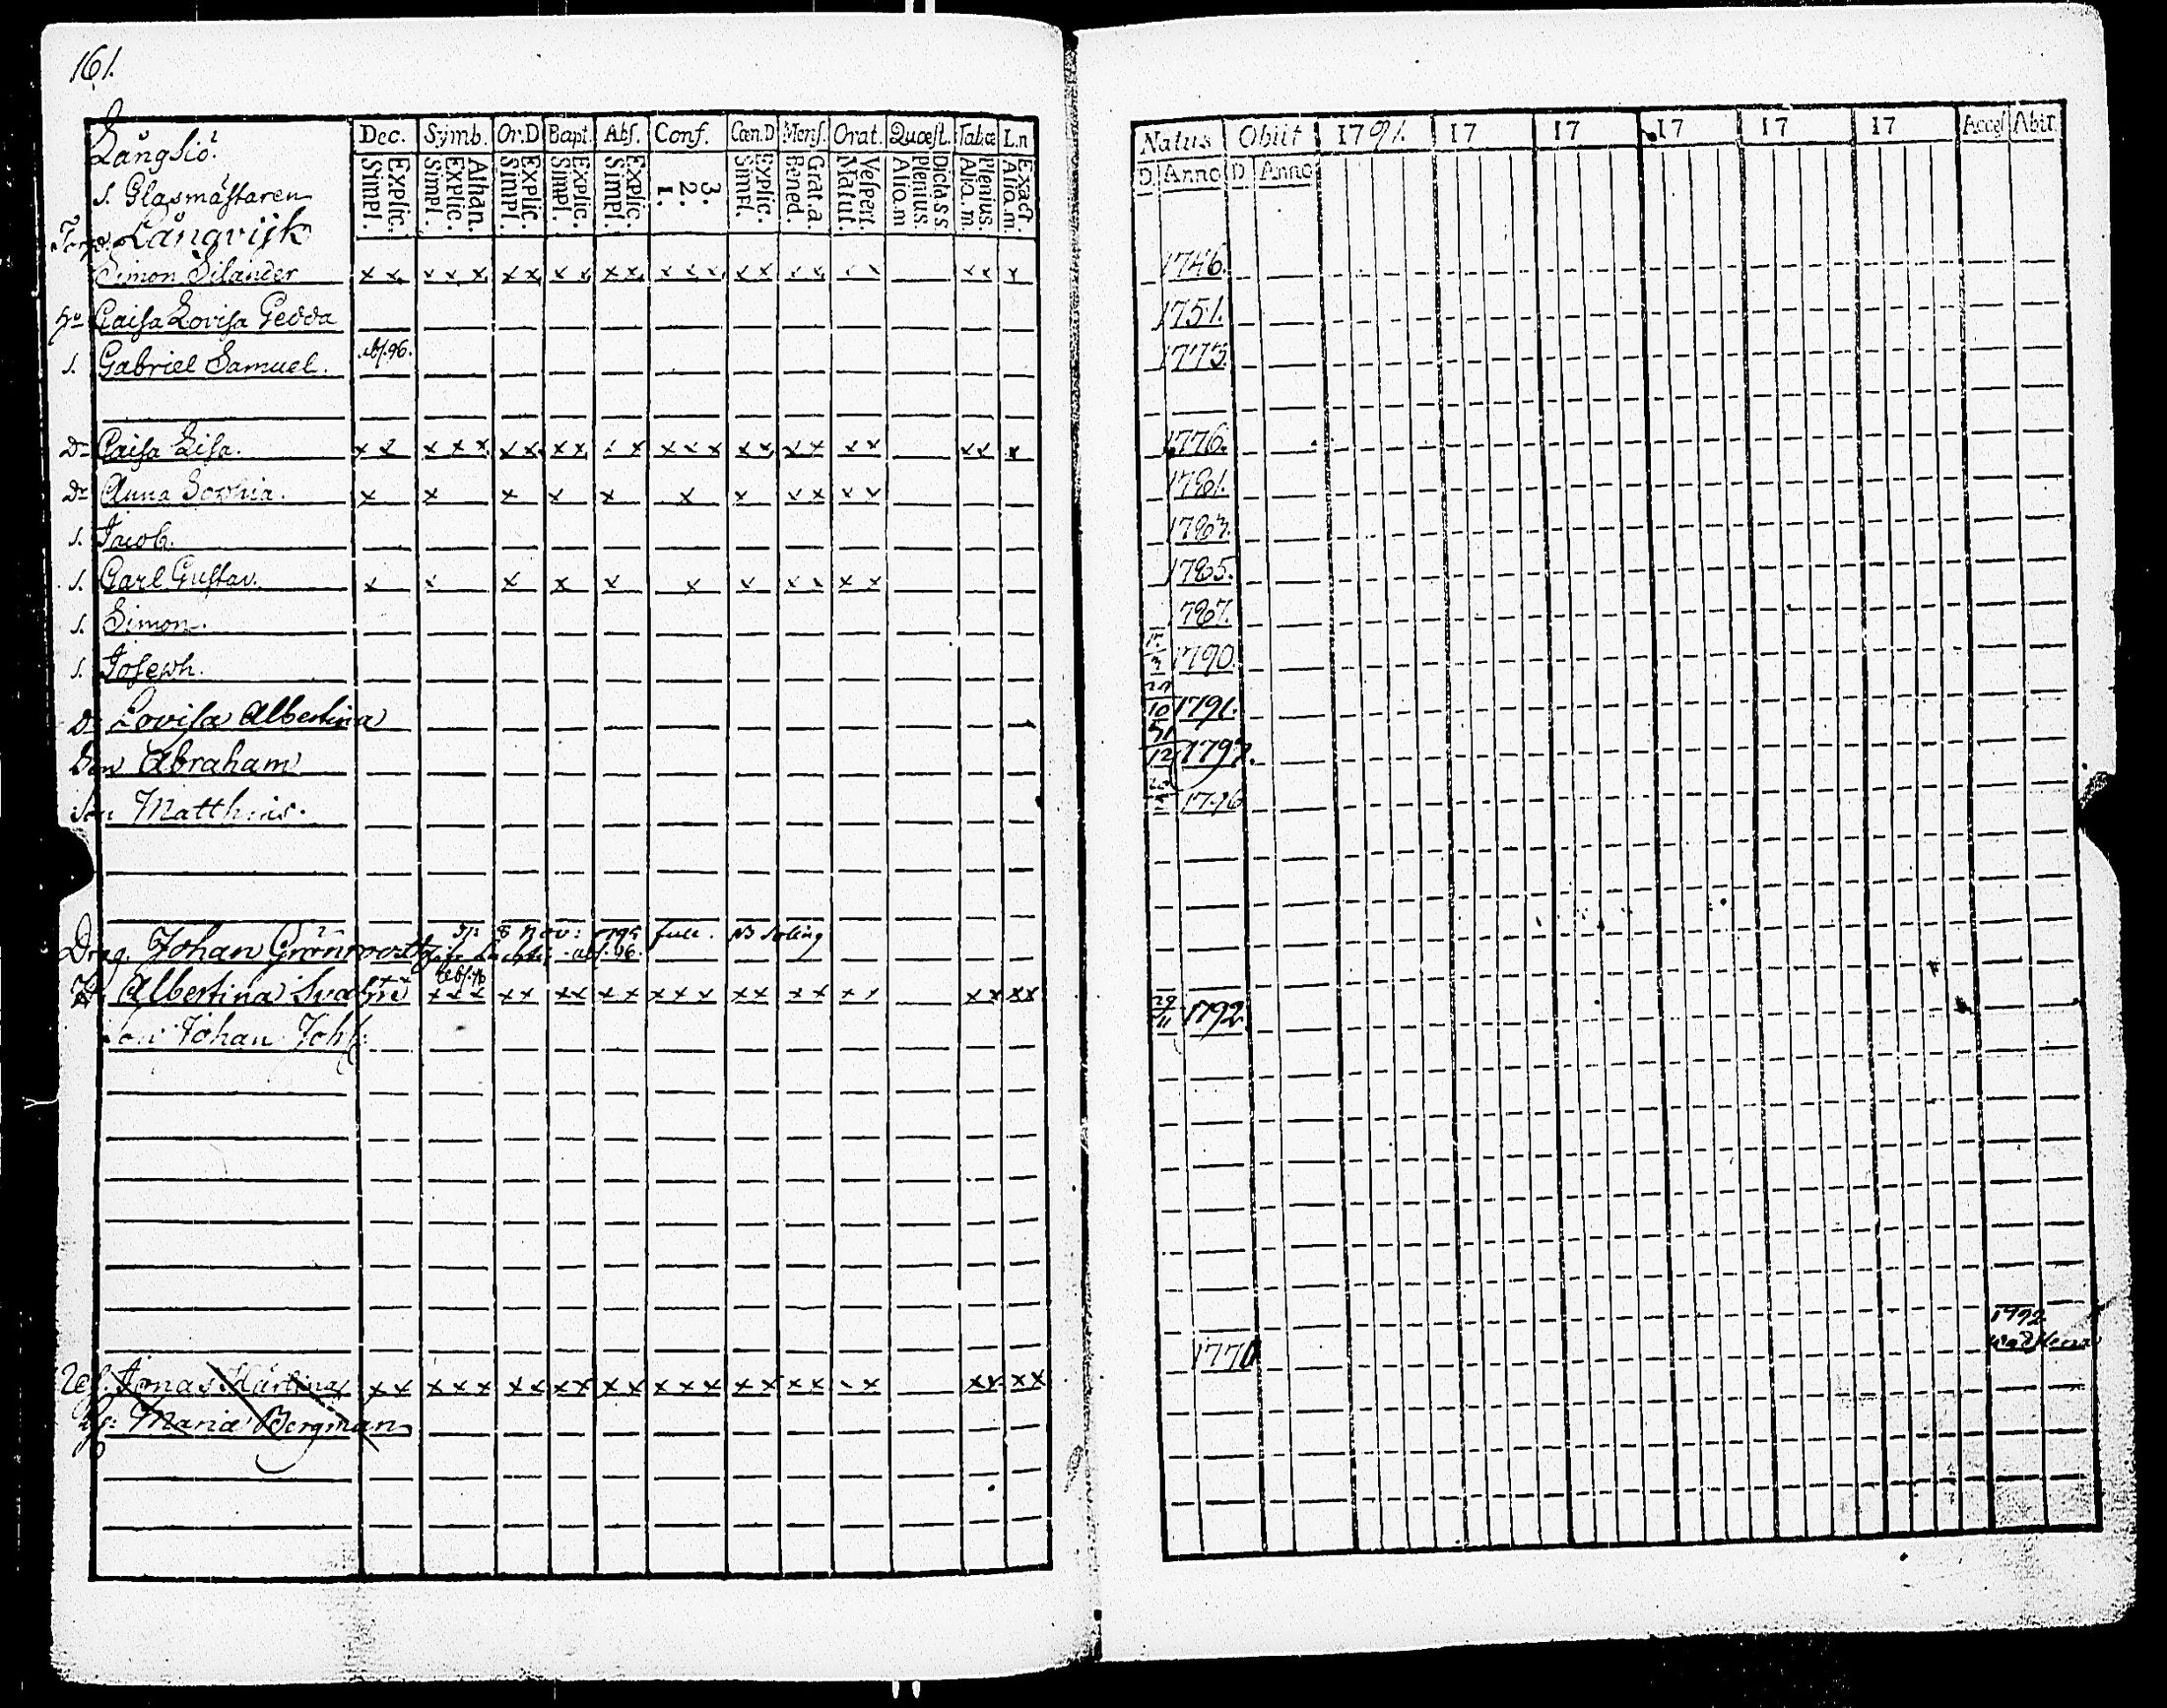 161.
Långsiö.
s. Glasmästaren
Torp. Långvijk
Dec. Symb. Or.D Bapt. Abs. Conf. Cœn.D Mens. Orat. Quœst. Tab.œ L.n
Simpl. Explic. Simpl. Explic. Athan. Simpl. Explic. Simpl. Explic. Simpl. Explic. 1. 2. 3. Simpl. Explic. Bened. Grat.a. Matut. Vespert. Aliq.m Plenius. Dicta s.s. Aliq.m. Plenius. Aliq.m Exact.
Simon Silander x x x x x x x x x x x x x x x x x x x x x x x
hu Caisa Lovisa Gedda
s. Gabriel Samuel. abs. 96.
Dr Caisa Lisa. x x x x x x x x x x x x x x x x x x x x x x x
Dr Anna Sophia. x x x x x x x x x x x
s. Jacob.
s. Carl Gustav. x x x x x x x x x x x
s. Simon.
s. Joseph.
Dr Lovisa Albertina
Son Abraham
Son Matthias.
8 Nov: 1795
Drag. Johan abs. 96.
abs. 96
H. Albertina x x x x x x x x x x x x x x x x x x x x x x
Son Johan Joh
Jonas x x x x x x x x x x x x x x x x x x x x x x x x
Maria Bergman
Natus Obiit 1791. 17 17 17 17 17 Acceß Abit.
D. Anno D Anno
1746.
1751.
1775.
1776.
1781.
1783.
1785.
1787.
1790.
10 1791.
12 1793.
1796
29 11 1792
1792
1770